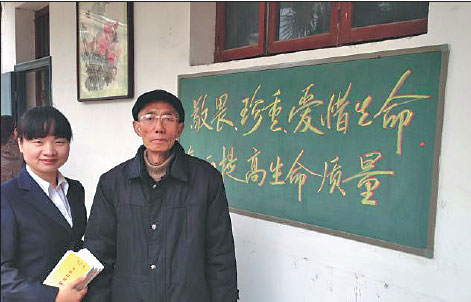 敬畏、珍重、爱惜生命
提高生命质量